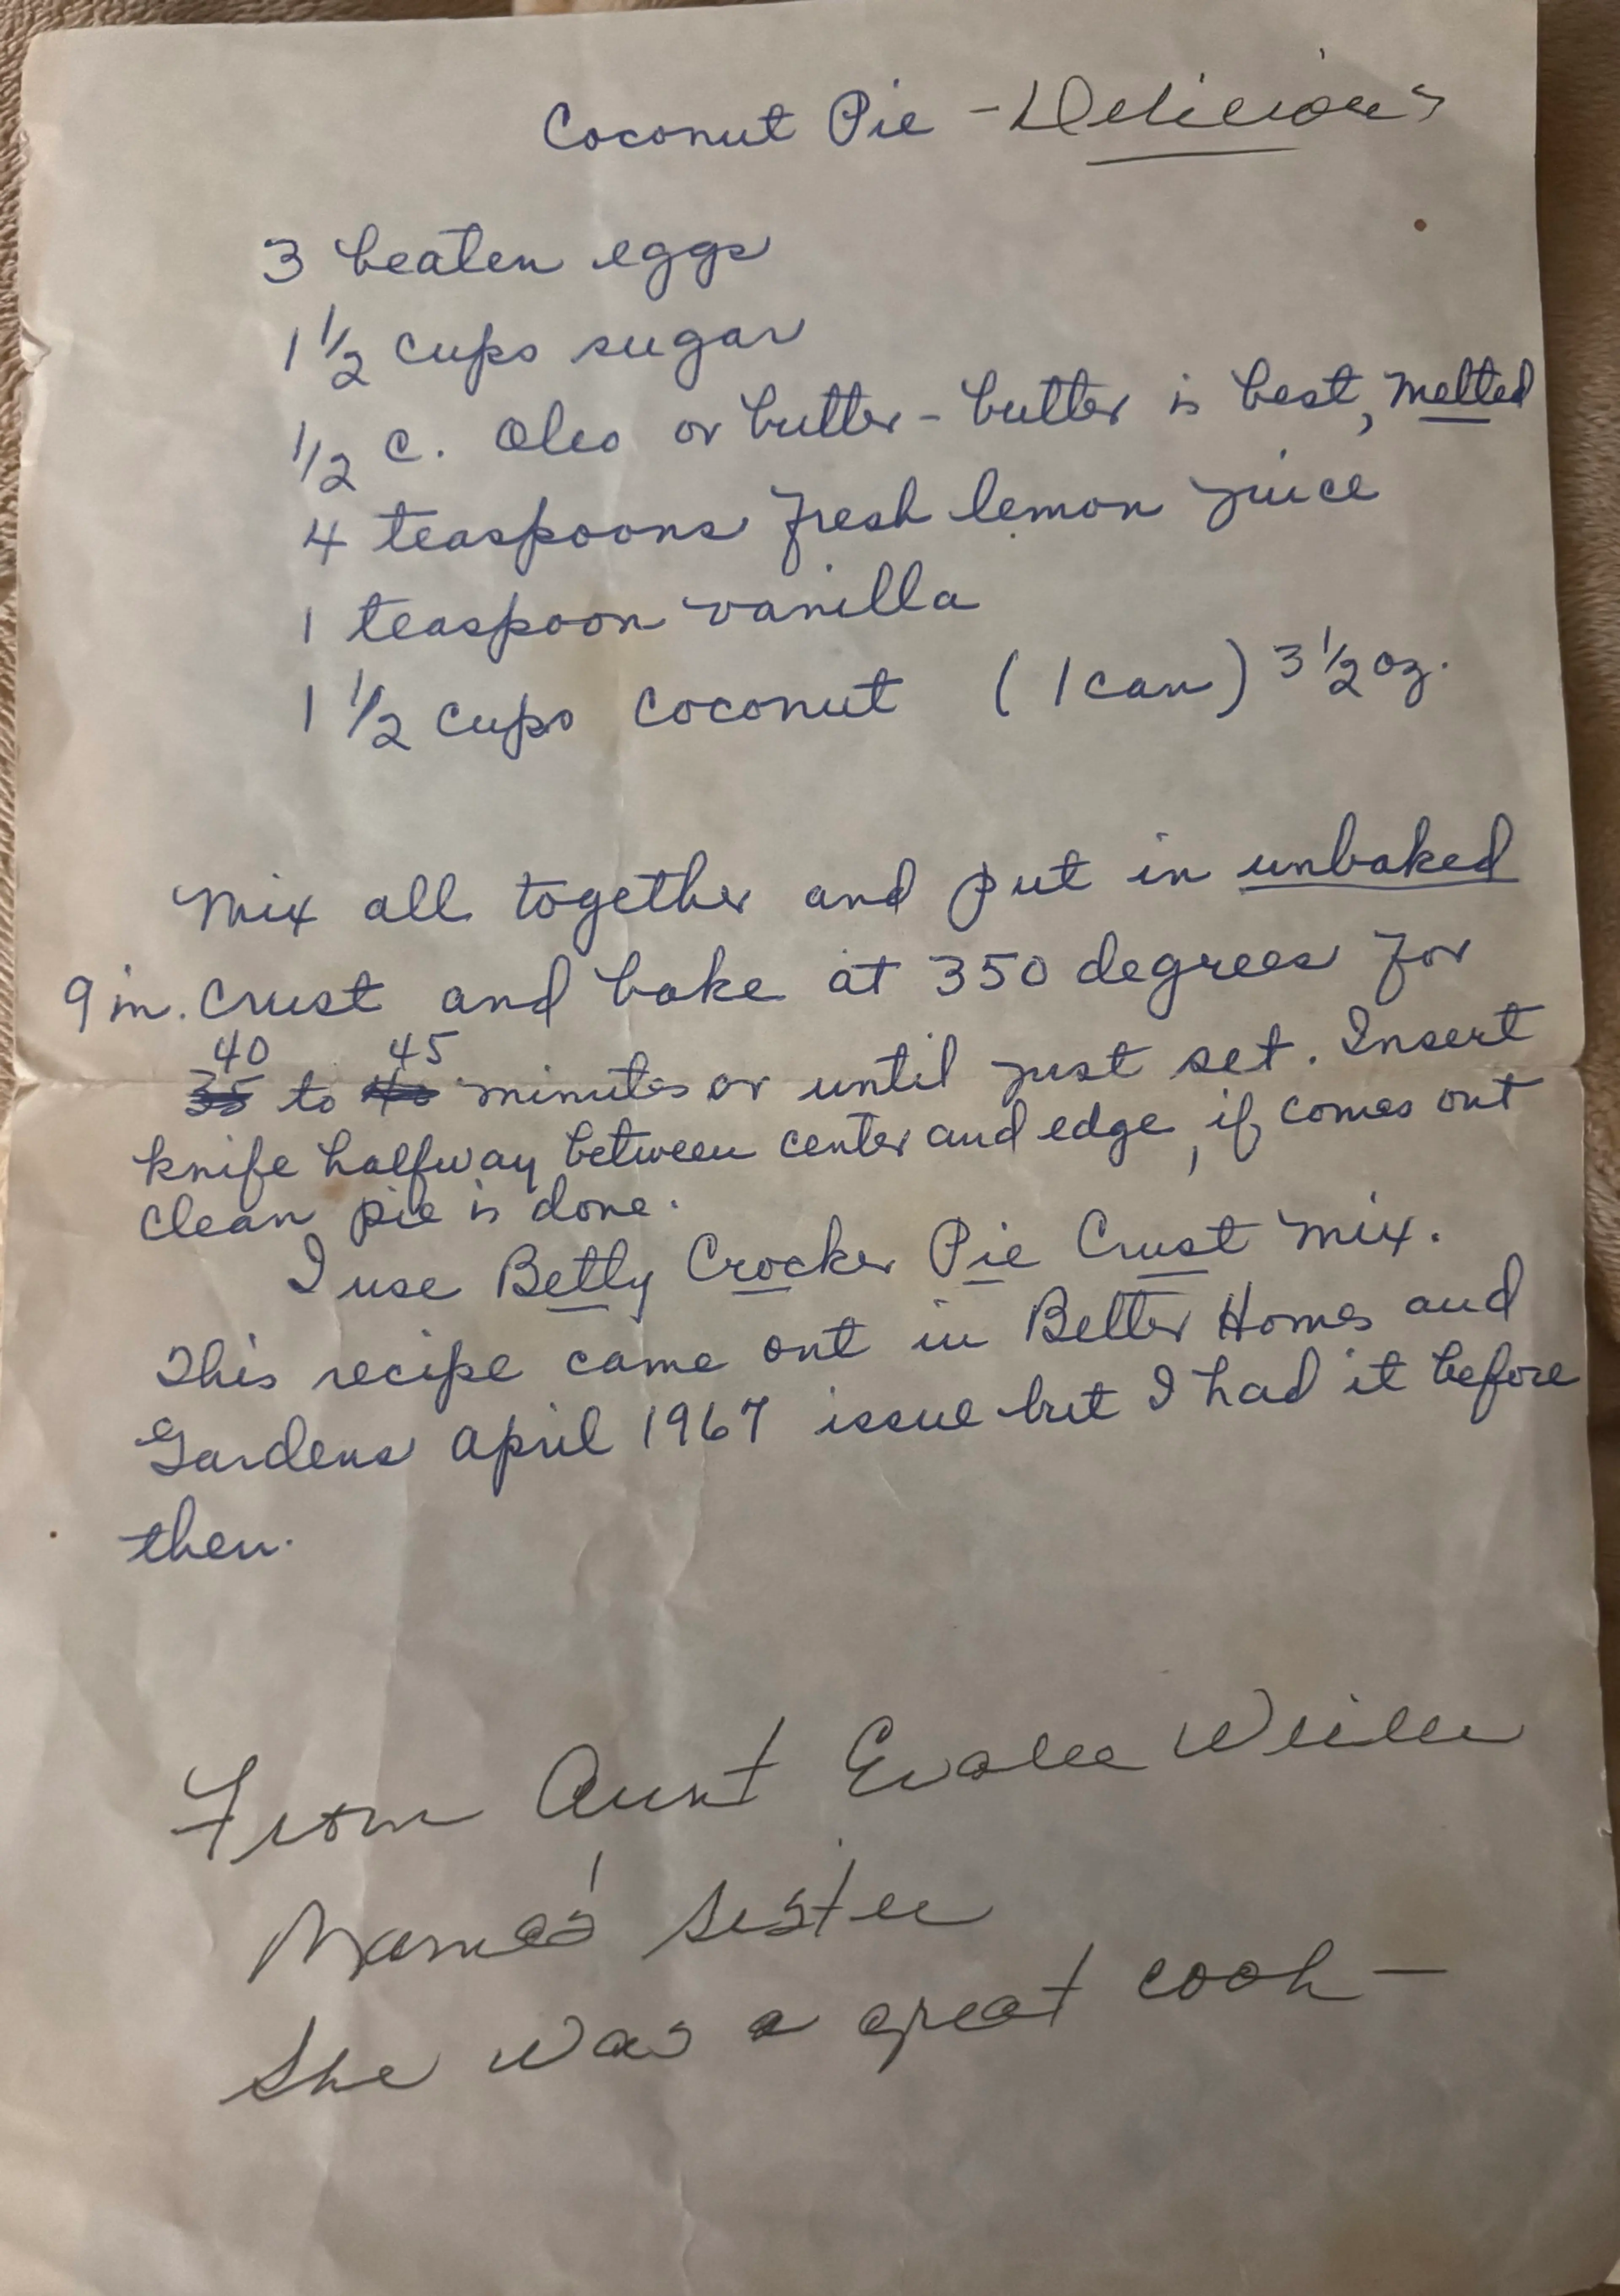 Coconut Pie - Delicious
3 beaten eggs
1 1/2 cups sugar
1/2 c. Oleo or butter - butter is best, melted
4 teaspoons fresh lemon juice
1 teaspoon vanilla
1 1/2 cups coconut (1 can) 3 1/2 oz.
Mix all together and put in unbaked
9 in. crust and bake at 350 degrees for
40 45
35 to 40 minutes or until just set. Insert
knife halfway between center and edge, if comes out
clean pie is done.
I use Betty Crocker Pie Crust mix.
This recipe came out in Better Homes and
Gardens April 1967 issue but I had it before
then.
From Aunt Evalee
Mama's sister
She was a great cook —